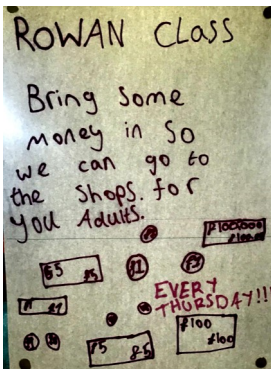 ROWAN Class
Bring Some
money in So
we can go to
the Shops. for
you Adults.
£100,000
£100,00
£5
£5
£1
EVERY
THURSDAY!!!
£5
£5
£100
£100